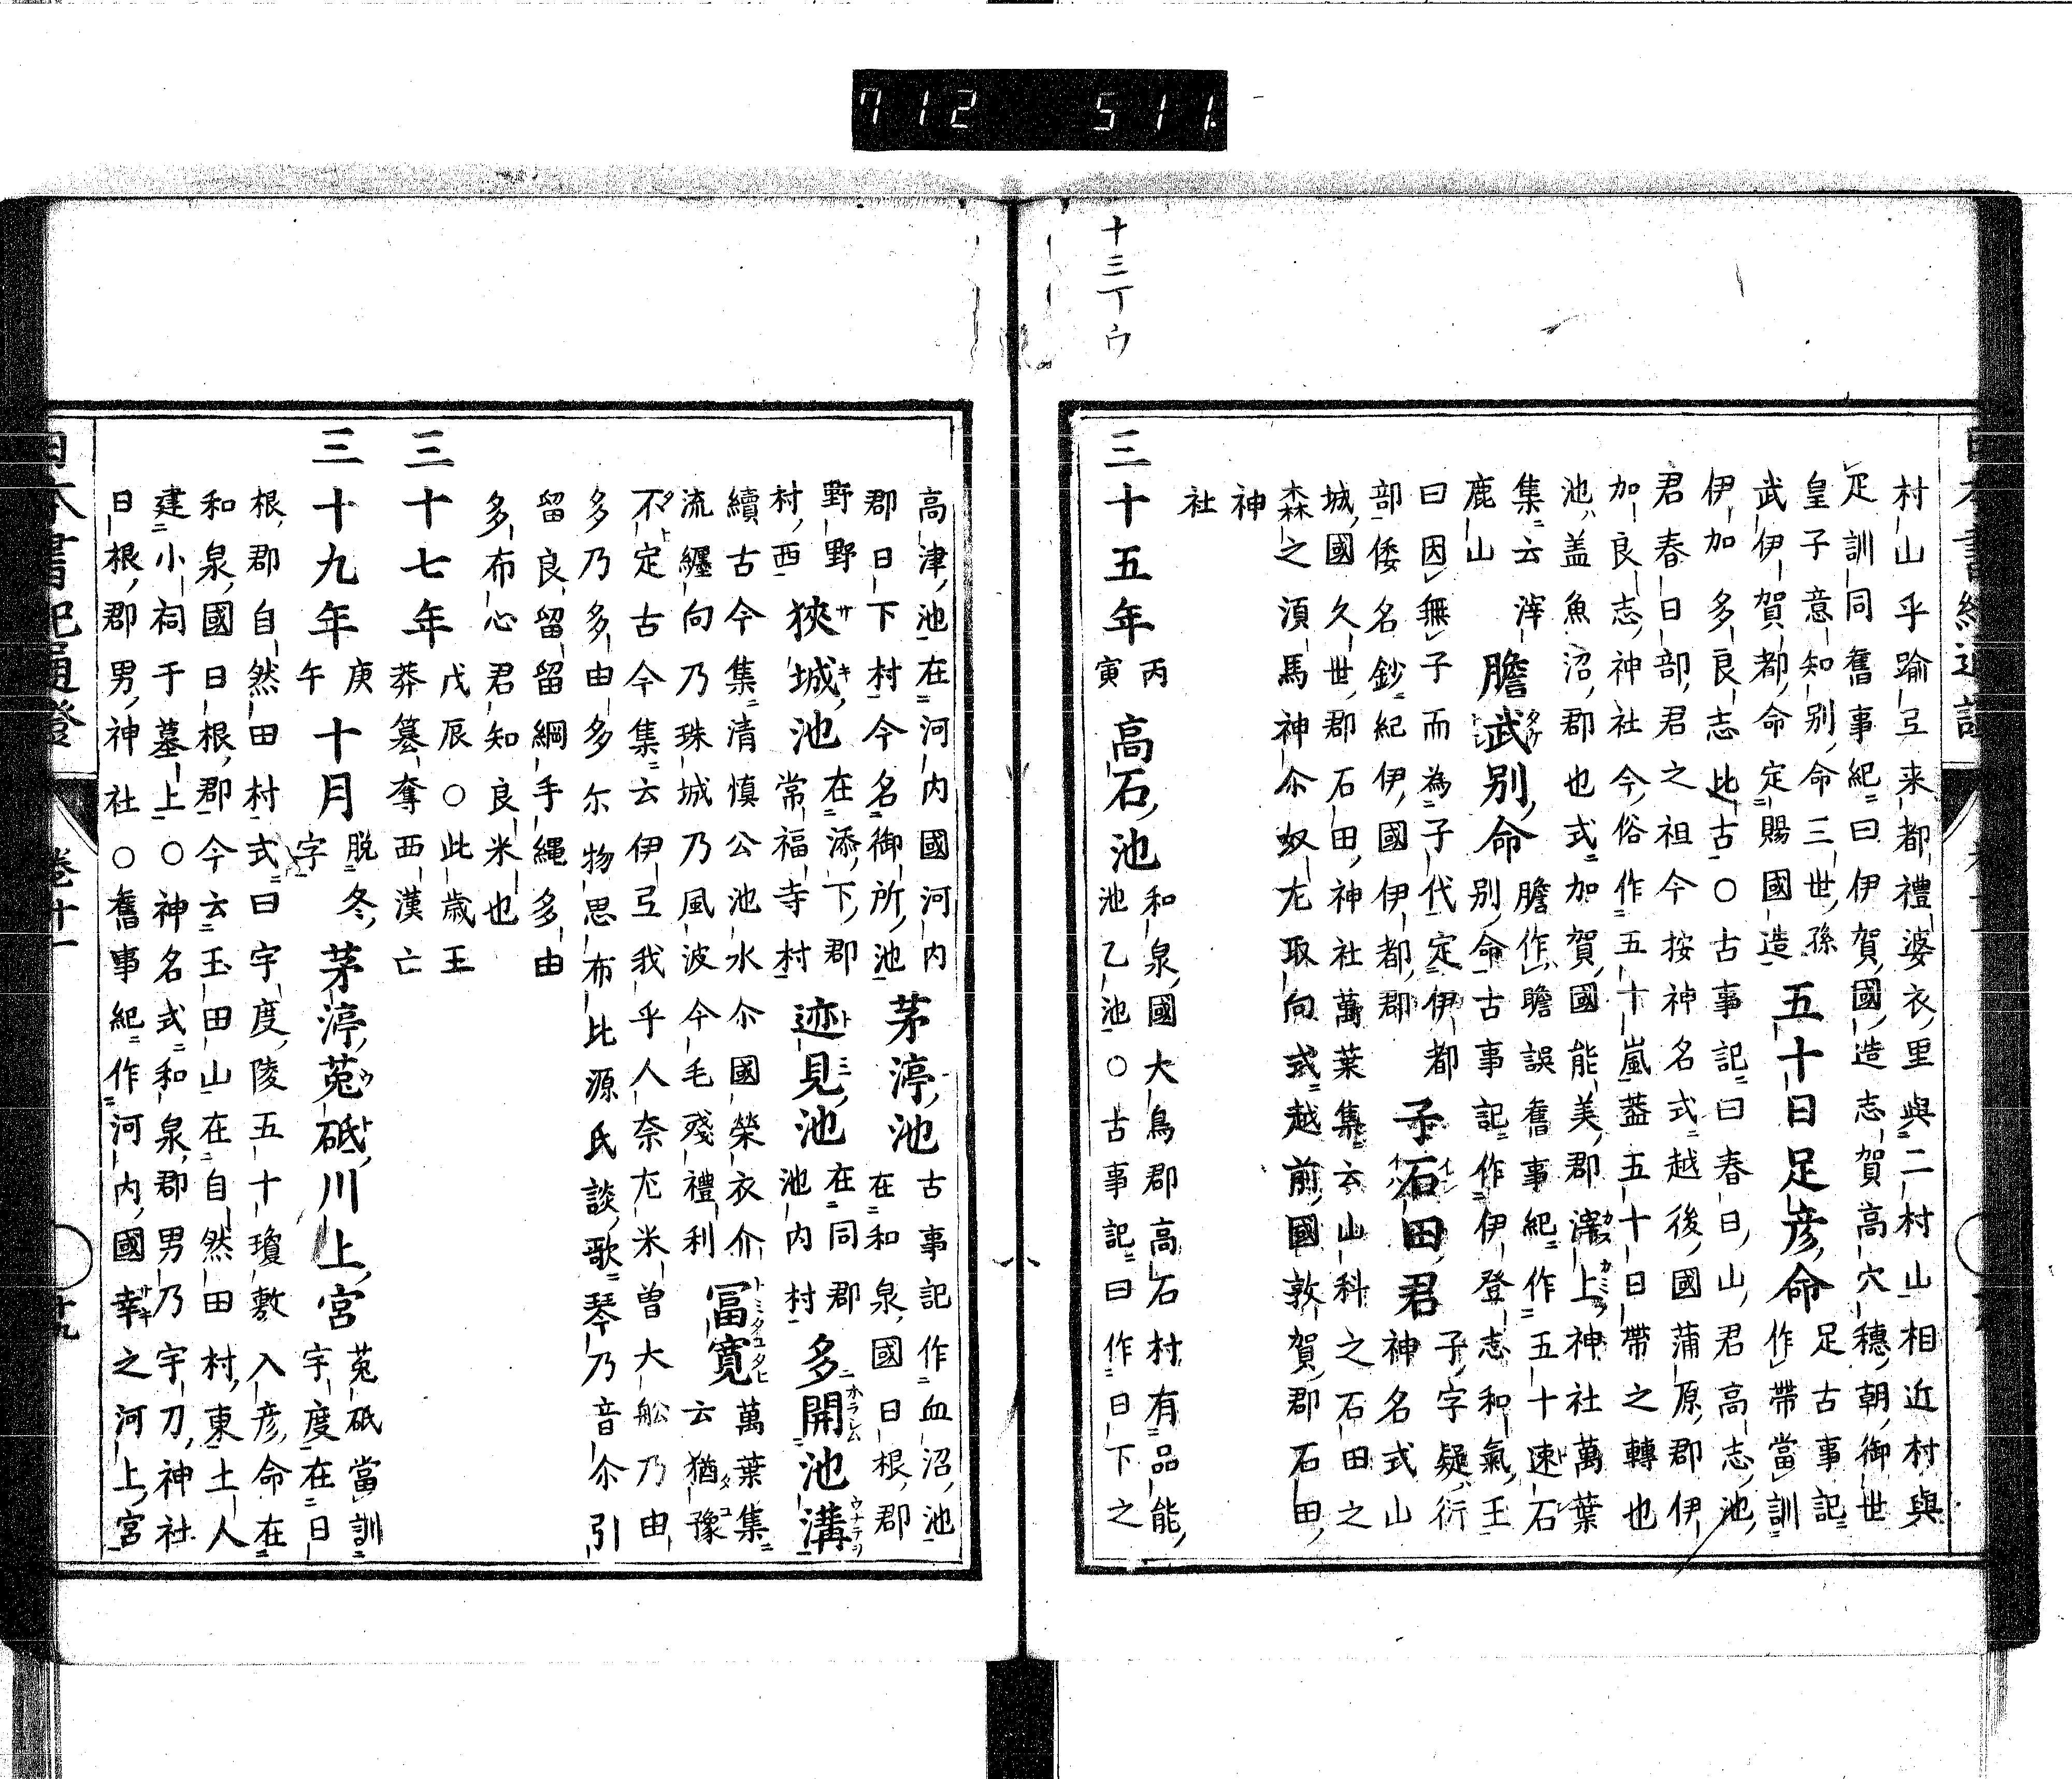 712 511
十三丁ウ
村山乎踰弖来都禮婆衣里與二村山相近村與
疋訓同舊事紀曰伊賀國造志賀高穴穗朝御世
皇子意知別命三世孫
武伊賀都命定賜國造
五十日足彦命
足古事記
作帶當訓
伊加多良志比古○古事記曰春日山君高志池
君春日部君之祖今按神名式越後國蒲原郡伊
加良志神社今俗作五十嵐葢五十日帶之轉也
池盖魚沼郡也式加賀國能美郡滓上神社萬葉
集云滓
鹿山
膽武別命
膽作瞻誤舊事紀作五十速石
別命古事記作伊登志和氣王
曰因無子而為子代定伊都
部倭名鈔紀伊國伊都郡
子石田君
子字疑衍
神名式山
城國久世郡石田神社萬葉集云山科之石田之
森之湏馬神尒奴尢取向式越前國敦賀郡石田
神
社
三十五年
丙
寅
高石池
和泉國大鳥郡高石村有品能
池乙池○古事記曰作日下之
高津池在河内國河内
郡日下村今名御所池
茅渟池
古事記作血沼池
在和泉國日根郡
野野
村西
狹城池
在添下郡
常福寺村
迹見池
在同郡
池内村
多開池溝
續古今集清慎公池水尒國榮衣介
流纒向乃珠城乃風波今毛殘禮利
冨寛
萬葉集
云猶豫
不定古今集云伊弖我乎人奈尢米曽大舩乃由
多乃多由多尓物思布比源氏談歌琴乃音尒引
留良留留綱手縄多由
多布心君知良米也
三十七年
戊辰○此歳王
莽簒奪西漢亡
三十九年
庚
午
十月
脱冬
字
茅渟菟砥川上宮
菟砥當訓
宇度在日
根郡自然田村式曰宇度陵五十瓊敷入彦命在
和泉國日根郡今云玉田山在自然田村東土人
建小祠于墓上○神名式和泉郡男乃宇刀神社
日根郡男神社○舊事紀作河内國幸之河上宮
日本書紀通證
卷十一